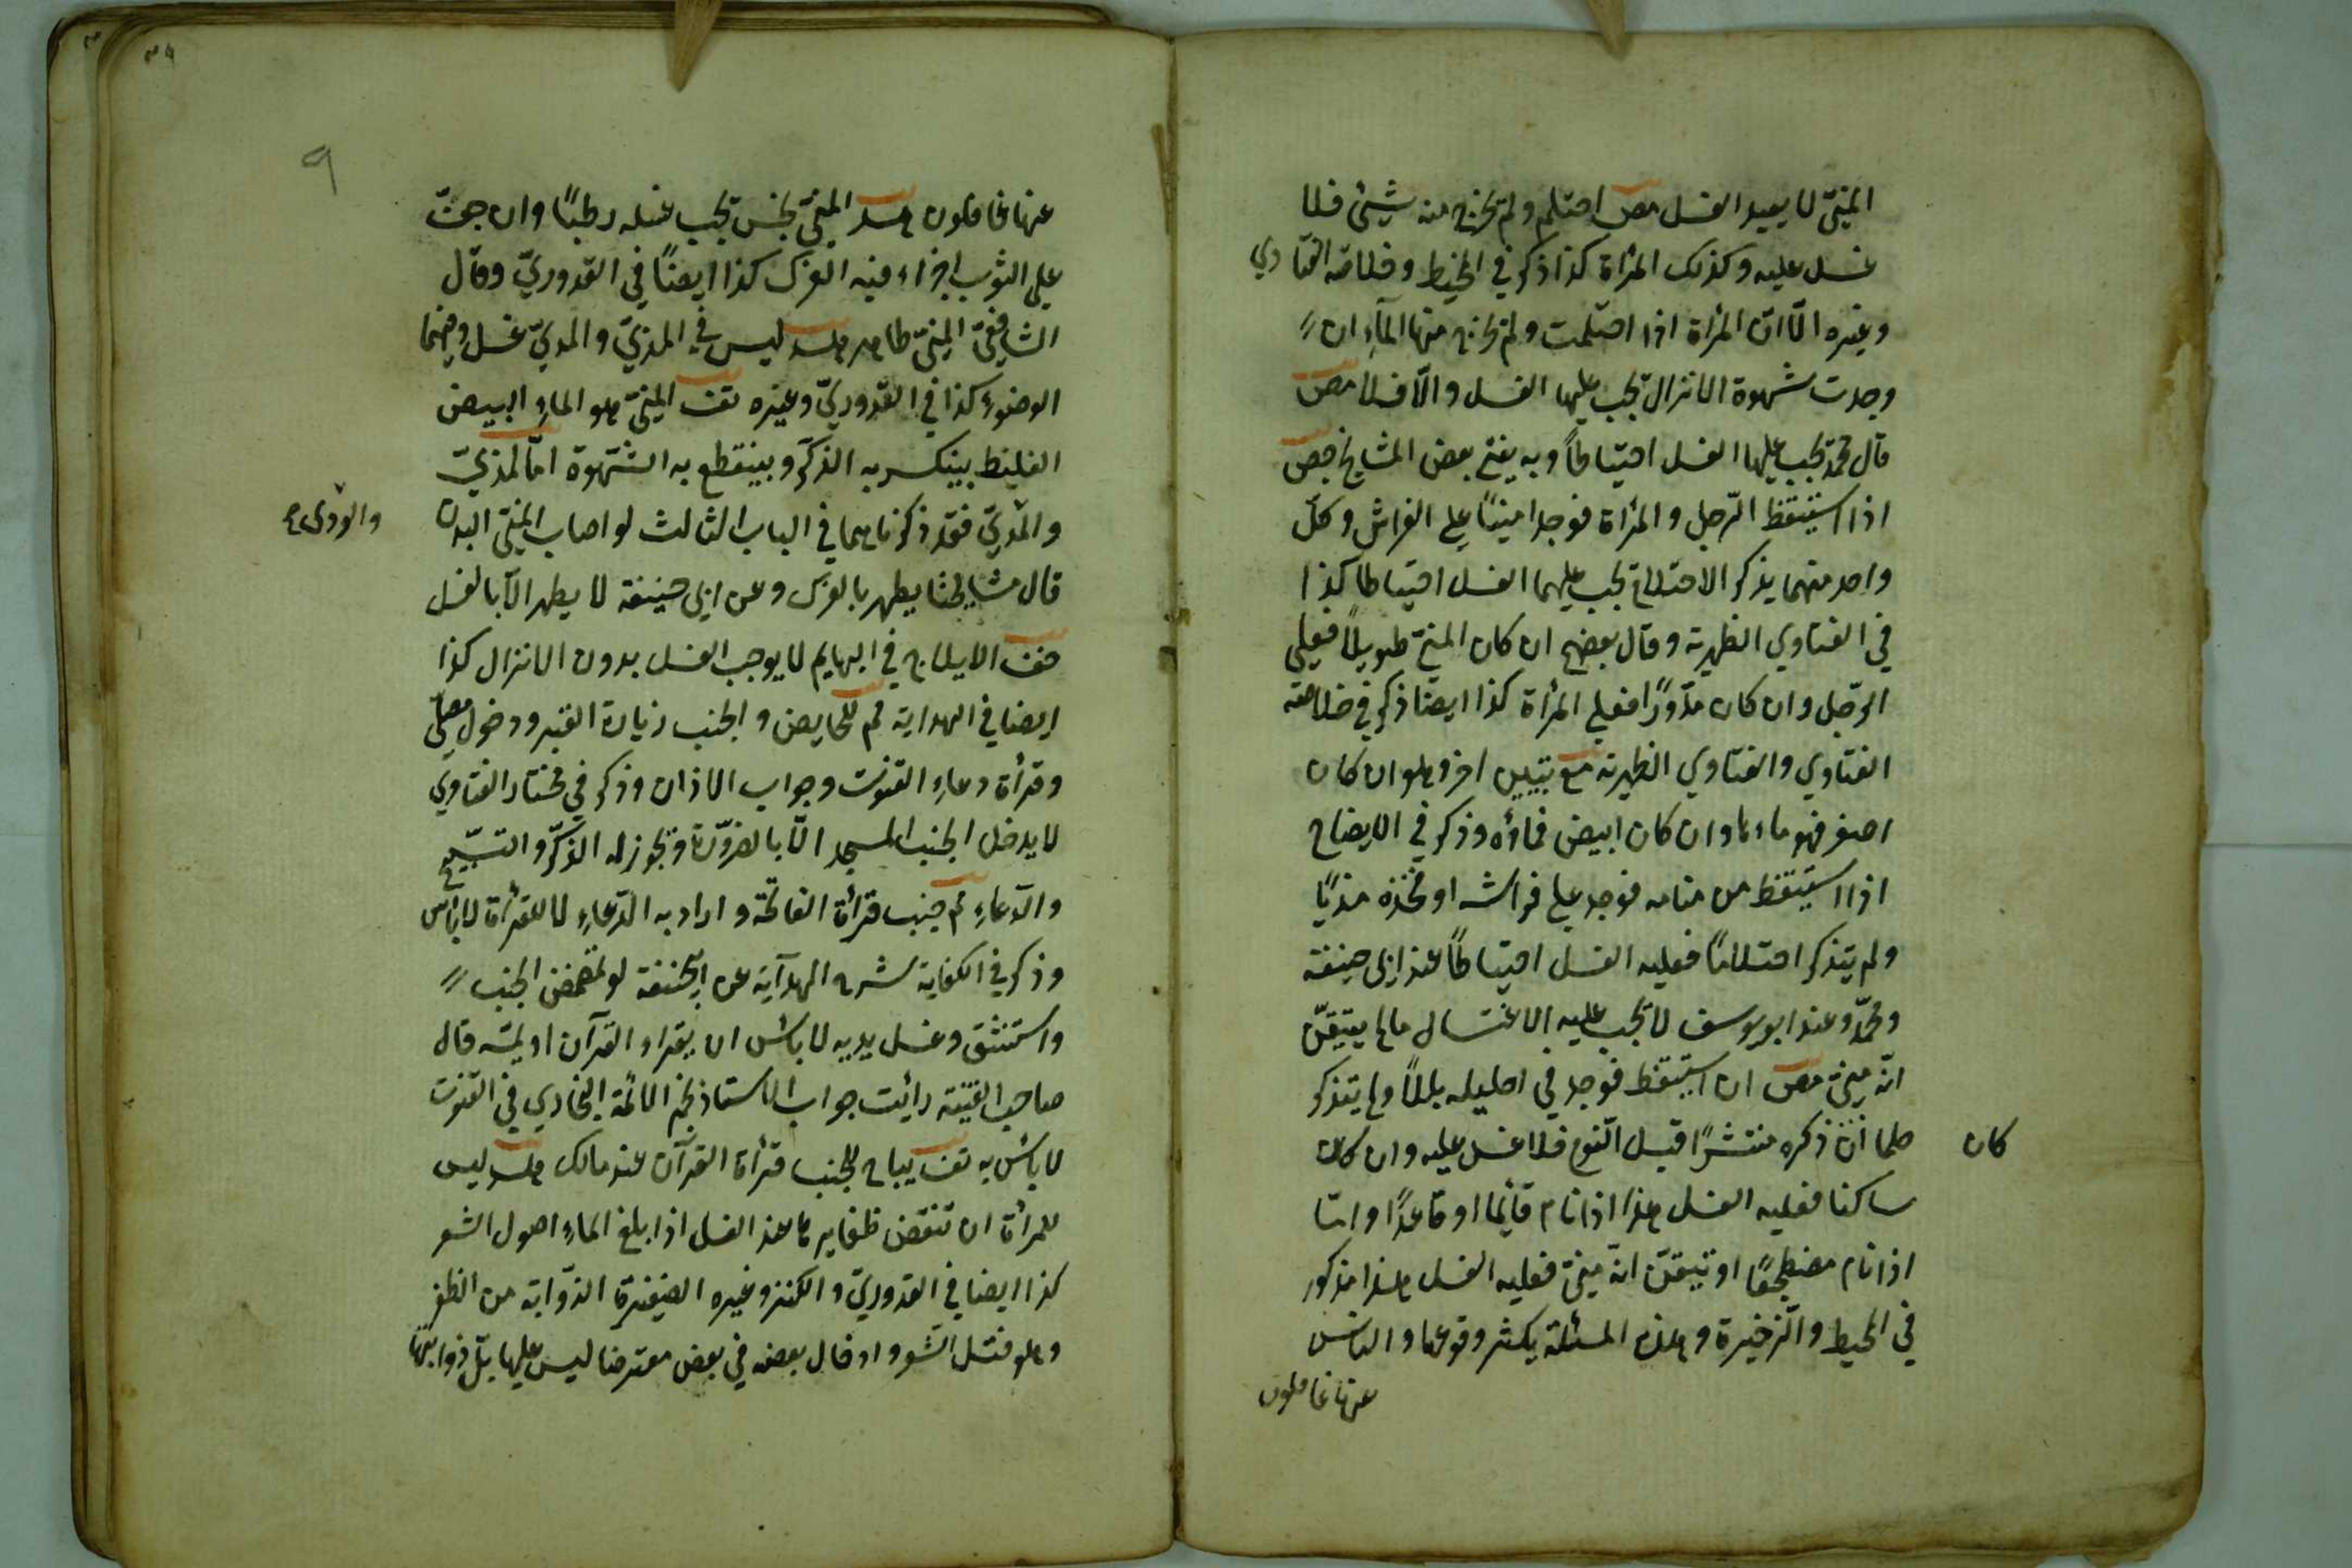 المنيّ لا يعيد الغسل مص احتلم ولم يخرج منه شيئ فلا
غسل عليه وكذلك المرأة كذا ذكر في المحيط وخلاصة الفتاوي
وغيره الّا انّ المرأة اذا احتلمت ولم يخرج منها المآء ان
وجدت شهوة الانزال يجب عليها الغسل والّا فلا مص
قال محمّد يجب عليها الغسل احتياطاً وبه يفتي بعض المشايخ
اذا استيقظ الرّجل والمرأة فوجدا منيًّا علي الفراش وكلّ
واحد منهما يذكر الاحتلام يجب عليهما الغسل احتياطا كذا
في الفتاوي الظهرية وقال بعضهم ان كان المنيّ طويلًا فعلي
الرّجل وان كان مدوّرًا فعلي المرأة كذا ايضا ذكر في خلاصة
الفتاوي والفتاوي الظهرية مع تبيين اخر وهو ان كان
اصفر فهو ماءها وان كان ابيض فماؤه وذكر في الايضاح
اذا استيقظ من منامه فوجد علي فراشه او فخذه مذيًّا
ولم يتذكر احتلامًا فعليه الغسل احتياطاً عند ابي حنيفة
ومحمّد وعند ابو يوسف لا يجب عليه الاغتسال مالم يتيقّن
انّه منيّ مص ان استيقظ فوجد في احليله بللاً ولم يتذكر
حلما ان ذكره منتشرًا قبل النّوم فلا غسل عليه وان كان
كان
ساكنا فعليه الغسل هذا اذا نام قآئما او قاعدًا وامّا
اذا نام مضطجعًا او تيقّن انّه منيّ فعليه الغسل هذا مذكور
في المحيط والذّخيرة وهذه المسئلة يكثر وقوعها والناس
عنها غافلون
٩
عنها غافلون المنيّ نجس يجب غسله رطبًا وان جفّ
علي الثوب اجزاء فيه الفرك كذا ايضًا في القدوريّ وقال
الشافعيّ المنيّ طاهر ليس في المذيّ والوديّ غسل وفيهما
الوضوء كذا في القدوريّ وغيره تف المنيّ هو الماء الابيض
الغليظ ينكسر به الذّكر وينقطع به الشّهوة امّا المذيّ
والمذيّ فقد ذكرناهما في الباب الثالث لو اصاب المنيّ البدن
والوديّ
قال مشايخنا يطهر بالفرك وعن ابي حنيفة لا يطهر الّا بالغسل
الايلاج في البهايم لا يوجب الغسل بدون الانزال كذا
ايضا في الهداية للحايض والجنب زيارة القبر ودخول مصلّي
وقرأة دعاء القنوت وجواب الاذان وذكر في مختار الفتاوي
لا يدخل الجنب المسجد الّا بالضرورة ويجوز له الذّكر والتسبيح
والدّعاء جنب قرأة الفاتحة واراد به الدّعاء لا القرأة لا بأس
وذكر في الكفاية شرح الهدآية عن ابيحنيفة لو تمضمض الجنب
واستنشق وغسل يديه لا بأس ان يقراء القرآن او يمسّه قال
صاحب القنية رأيت جواب الاستاذ نجم الائمّة البخاري في القنوت
لا بأس به تف يباح للجنب قرأة القرآن عند مالك ليس
للمرأة ان تنقض ظفايرها عند الغسل اذا بلغ الماء اصول الشعر
كذا ايضا في القدوريّ والكنز وغيره الضفيرة الذّوابة من الظفر
وهو فتل الشّعر وادخال بعضه في بعض معترضا ليس عليها بلّ ذوابتها